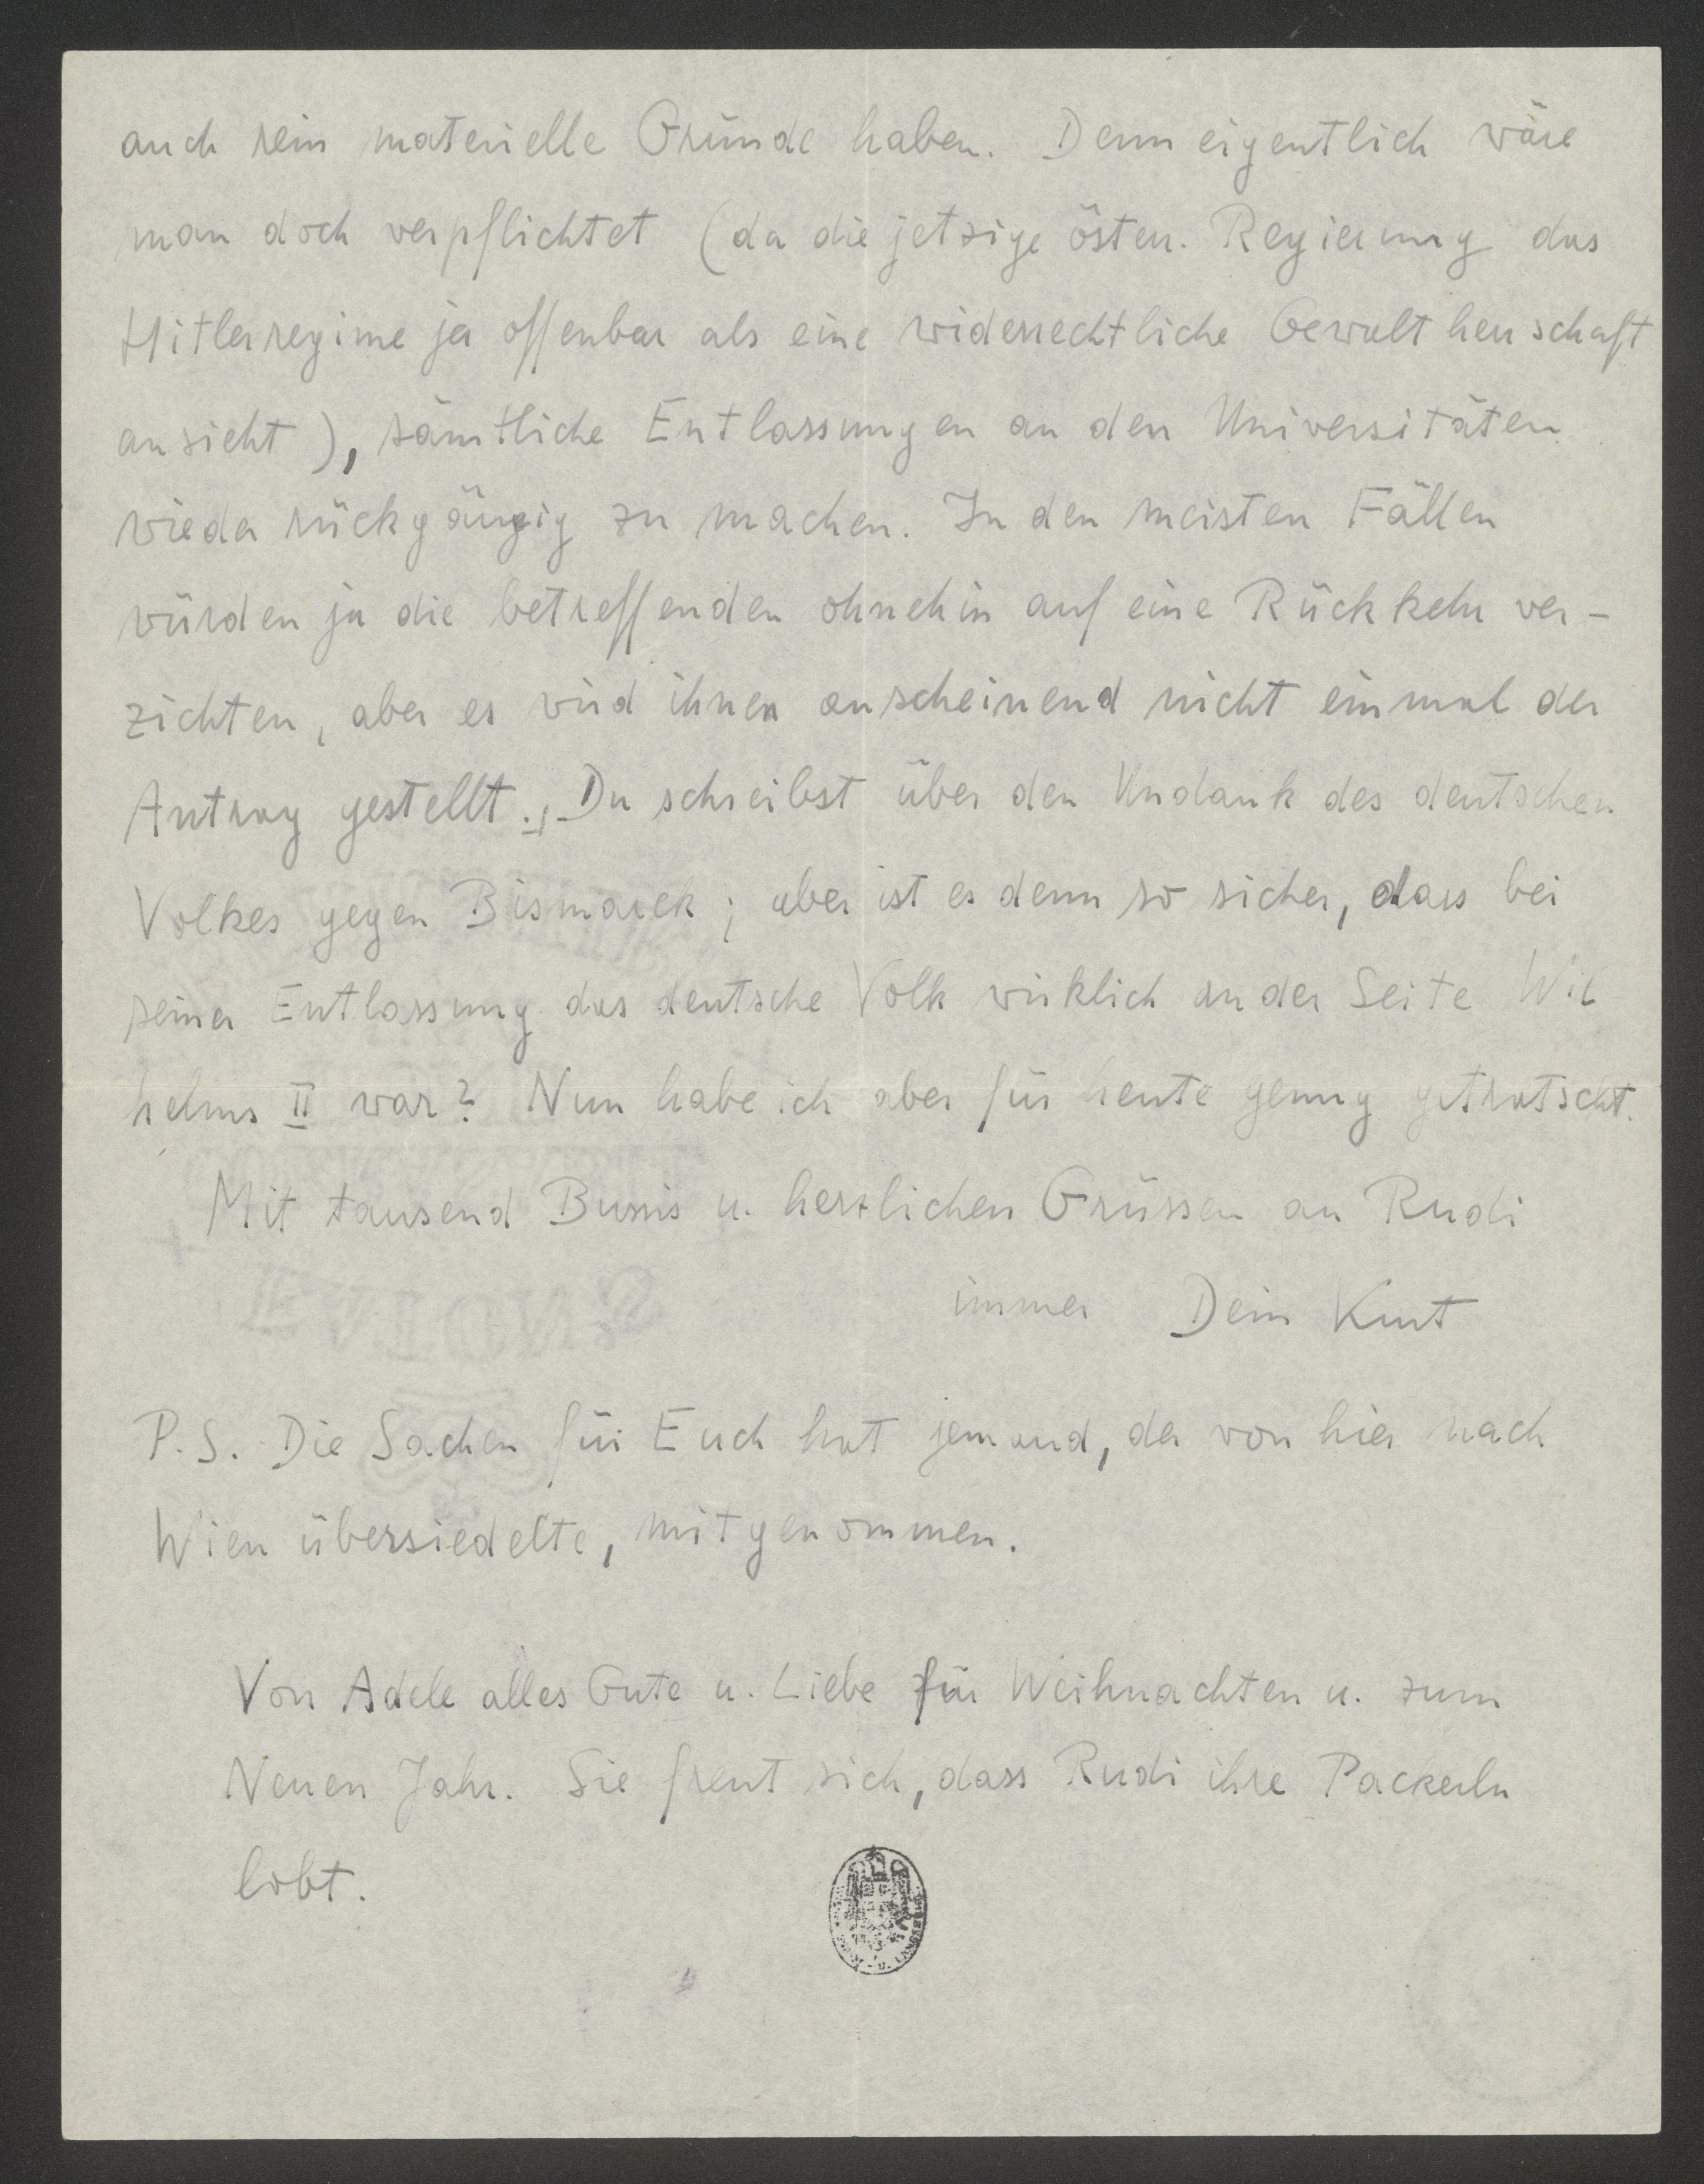 auch rein materielle Gründe haben. Denn eigentlich wäre
man doch verpflichtet (da die jetzige österr. Regierung das
Hitlerregime ja offenbar als eine widerrechtliche Gewaltherrschaft
ansieht), sämtliche Entlassungen an den Universitäten
wieder rückgängig zu machen. In den meisten Fällen
würden ja die betreffenden ohnehin auf eine Rückkehr ver-
zichten, aber es wird ihnen anscheinend nicht einmal der
Antrag gestellt. Du schreibst über den Undank des deutschen
Volkes gegen Bismarck; aber ist es denn so sicher, dass bei
seiner Entlassung das deutsche Volk wirklich an der Seite Wil
helms II war? Nun habe ich aber für heute genug getratscht.
Mit tausend Bussis u. herzlichen Grüssen an Rudi
immer Dein Kurt
P.S. Die Sachen für Euch hat jemand, der von hier nach
Wien übersiedelte, mitgenommen.
Von Adele alles Gute u. Liebe für Weihnachten u. zum
Neuen Jahr. Sie freut sich, dass Rudi ihre Packerln
lobt.